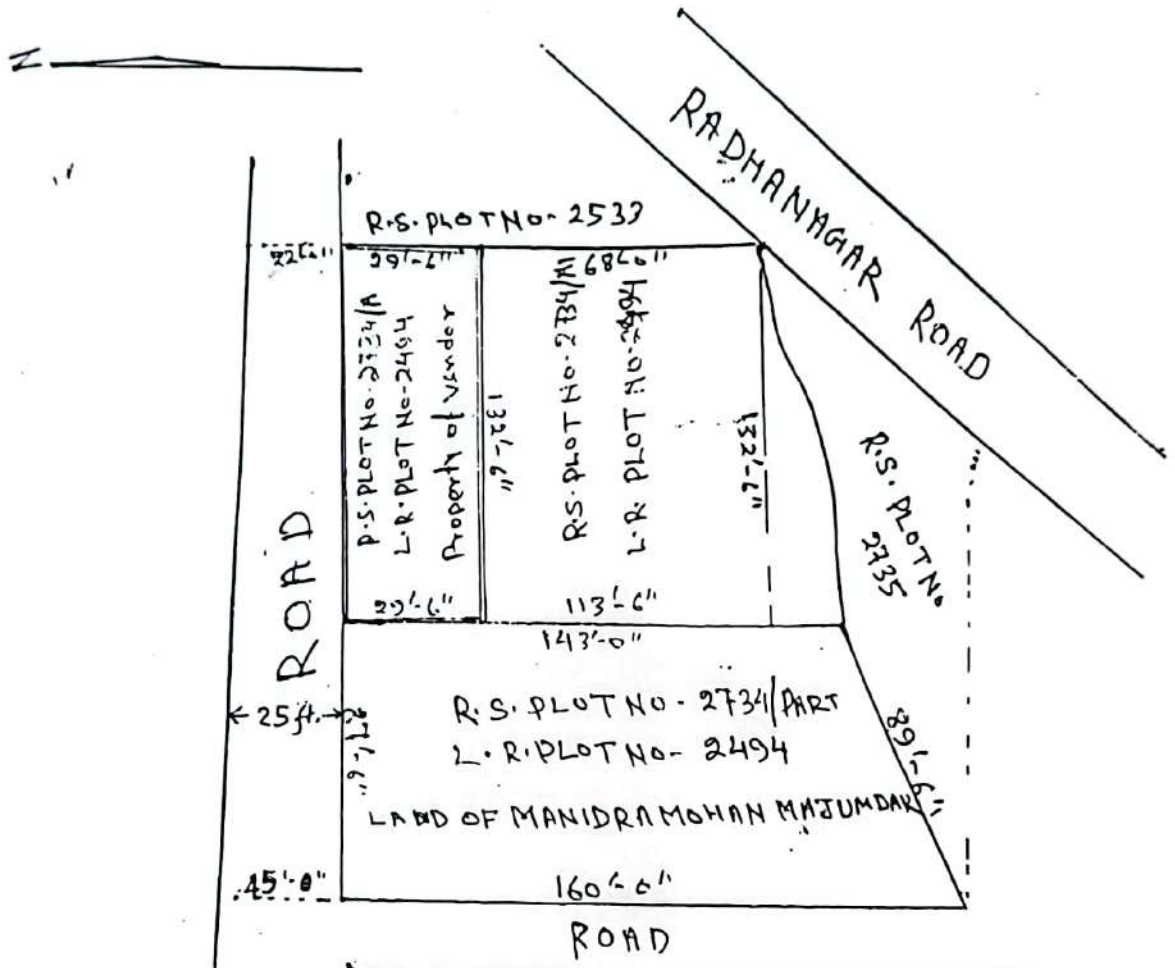 N
RADHANAGAR ROAD
R.S. PLOT No- 2533
29'-6"
68'-0"
R.S. PLOT No- 2734/A
L.R. PLOT No-2494
Property of vendor
132'-6"
R.S. PLOT No- 2734/A1
L.R. PLOT No-2494
132'-6"
R.S. PLOT No
2735
ROAD
29'-6"
113'-6"
143'-0"
25 ft.
R.S. PLOT NO - 2734/PART
L.R. PLOT NO- 2494
89'-6"
LAND OF MANIDRA MOHAN MAJUMDAR
45'-0"
160'-6"
ROAD